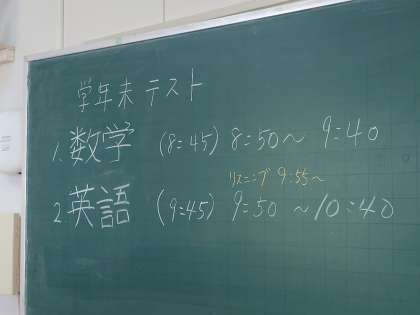 学年末テスト
1. 数学 (8:45) 8:50～ 9:40
リスニング 9:55～
2. 英語 (9:45) 9:50 ～10:40